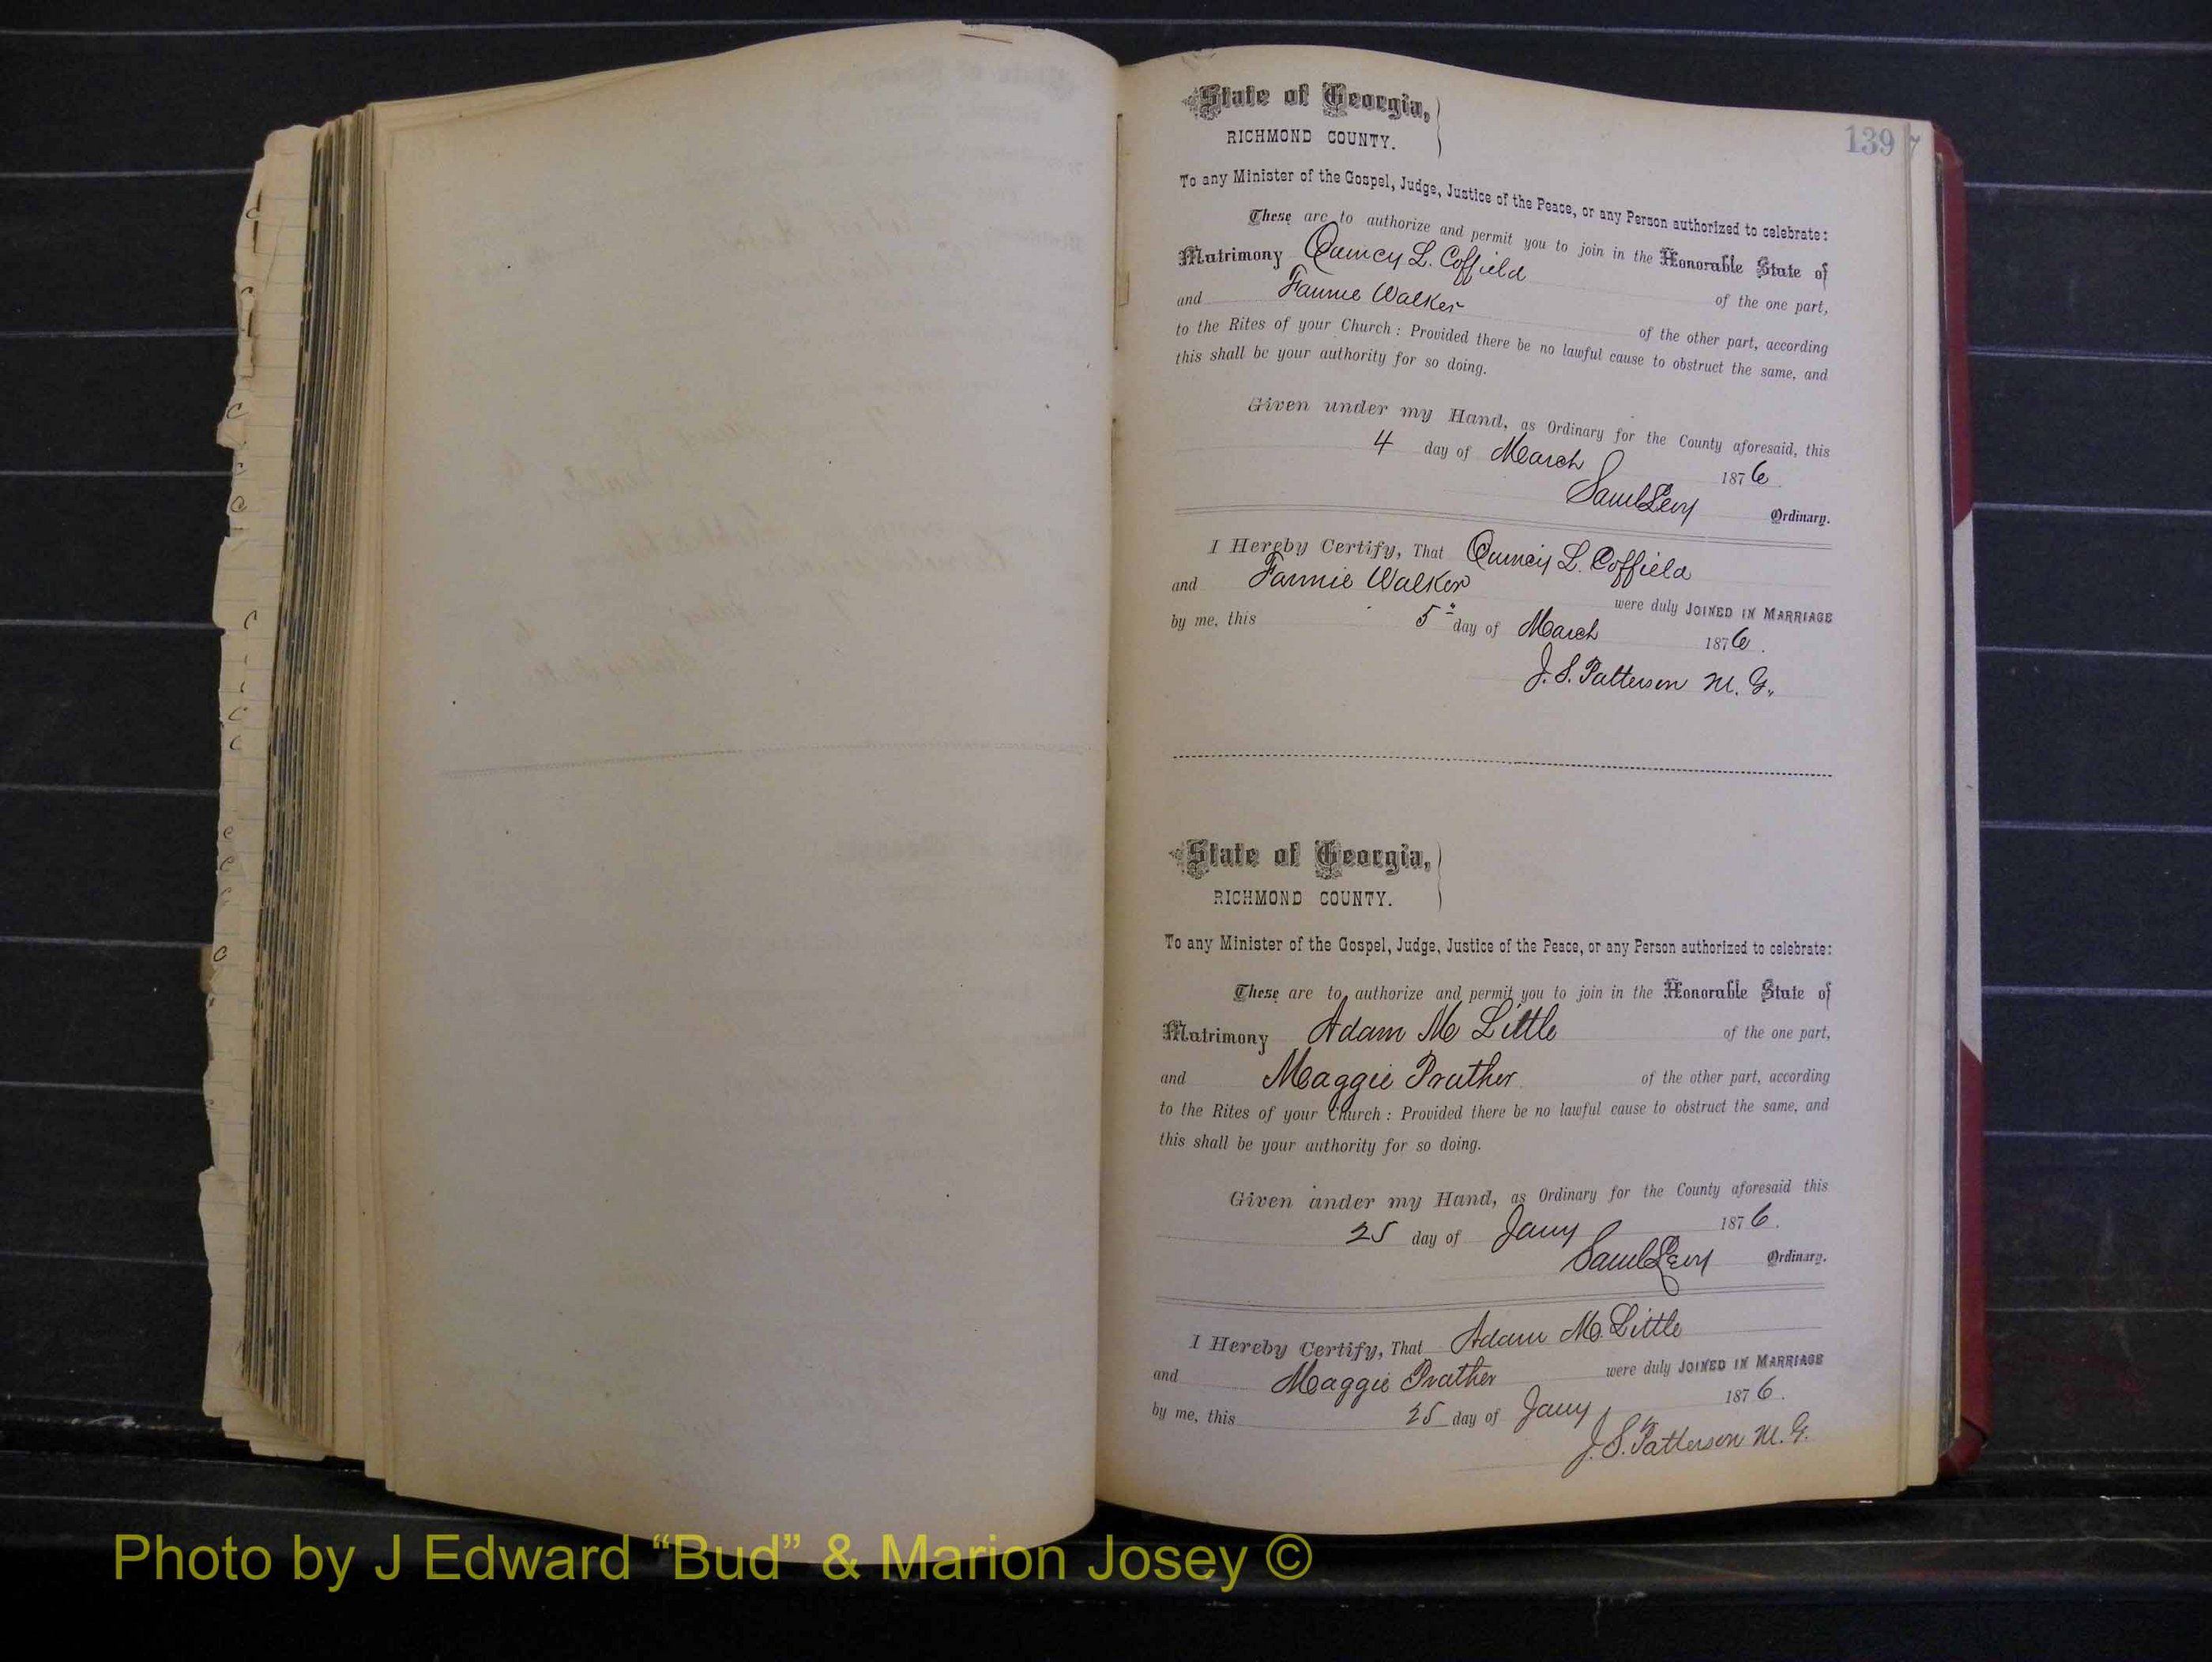 139
State of Georgia,
RICHMOND COUNTY.
To any Minister of the Gospel, Judge, Justice of the Peace, or any Person authorized to celebrate:
These are to authorize and permit you to join in the Honorable State of
Matrimony Quincy L. Coffield of the one part,
and Fannie Walker of the other part, according
to the Rites of your Church: Provided there be no lawful cause to obstruct the same, and
this shall be your authority for so doing.
Given under my Hand, as Ordinary for the County aforesaid, this
4 day of March 1876.
Saml Levy Ordinary.
I Hereby Certify, That Quincy L. Coffield
and Fannie Walker were duly JOINED IN MARRIAGE
by me, this 5" day of March 1876.
J. S. Patterson M. G.
State of Georgia,
RICHMOND COUNTY.
To any Minister of the Gospel, Judge, Justice of the Peace, or any Person authorized to celebrate:
These are to authorize and permit you to join in the Honorable State of
Matrimony Adam M Little of the one part,
and Maggie Prather of the other part, according
to the Rites of your Church: Provided there be no lawful cause to obstruct the same, and
this shall be your authority for so doing.
Given under my Hand, as Ordinary for the County aforesaid this
25 day of Jany 1876.
Saml Levy Ordinary.
I Hereby Certify, That Adam M. Little
and Maggie Prather were duly JOINED IN MARRIAGE
by me, this 25 day of Jany 1876.
J. S. Patterson M. G.
Photo by J Edward “Bud” & Marion Josey ©